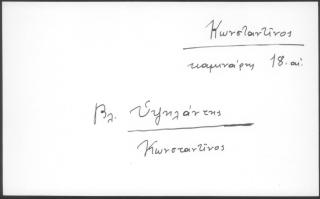 Κωνσταντῖνος
καμινάρης 18. αἰ.
Βλ. Ὑψηλάντης
Κωνσταντῖνος